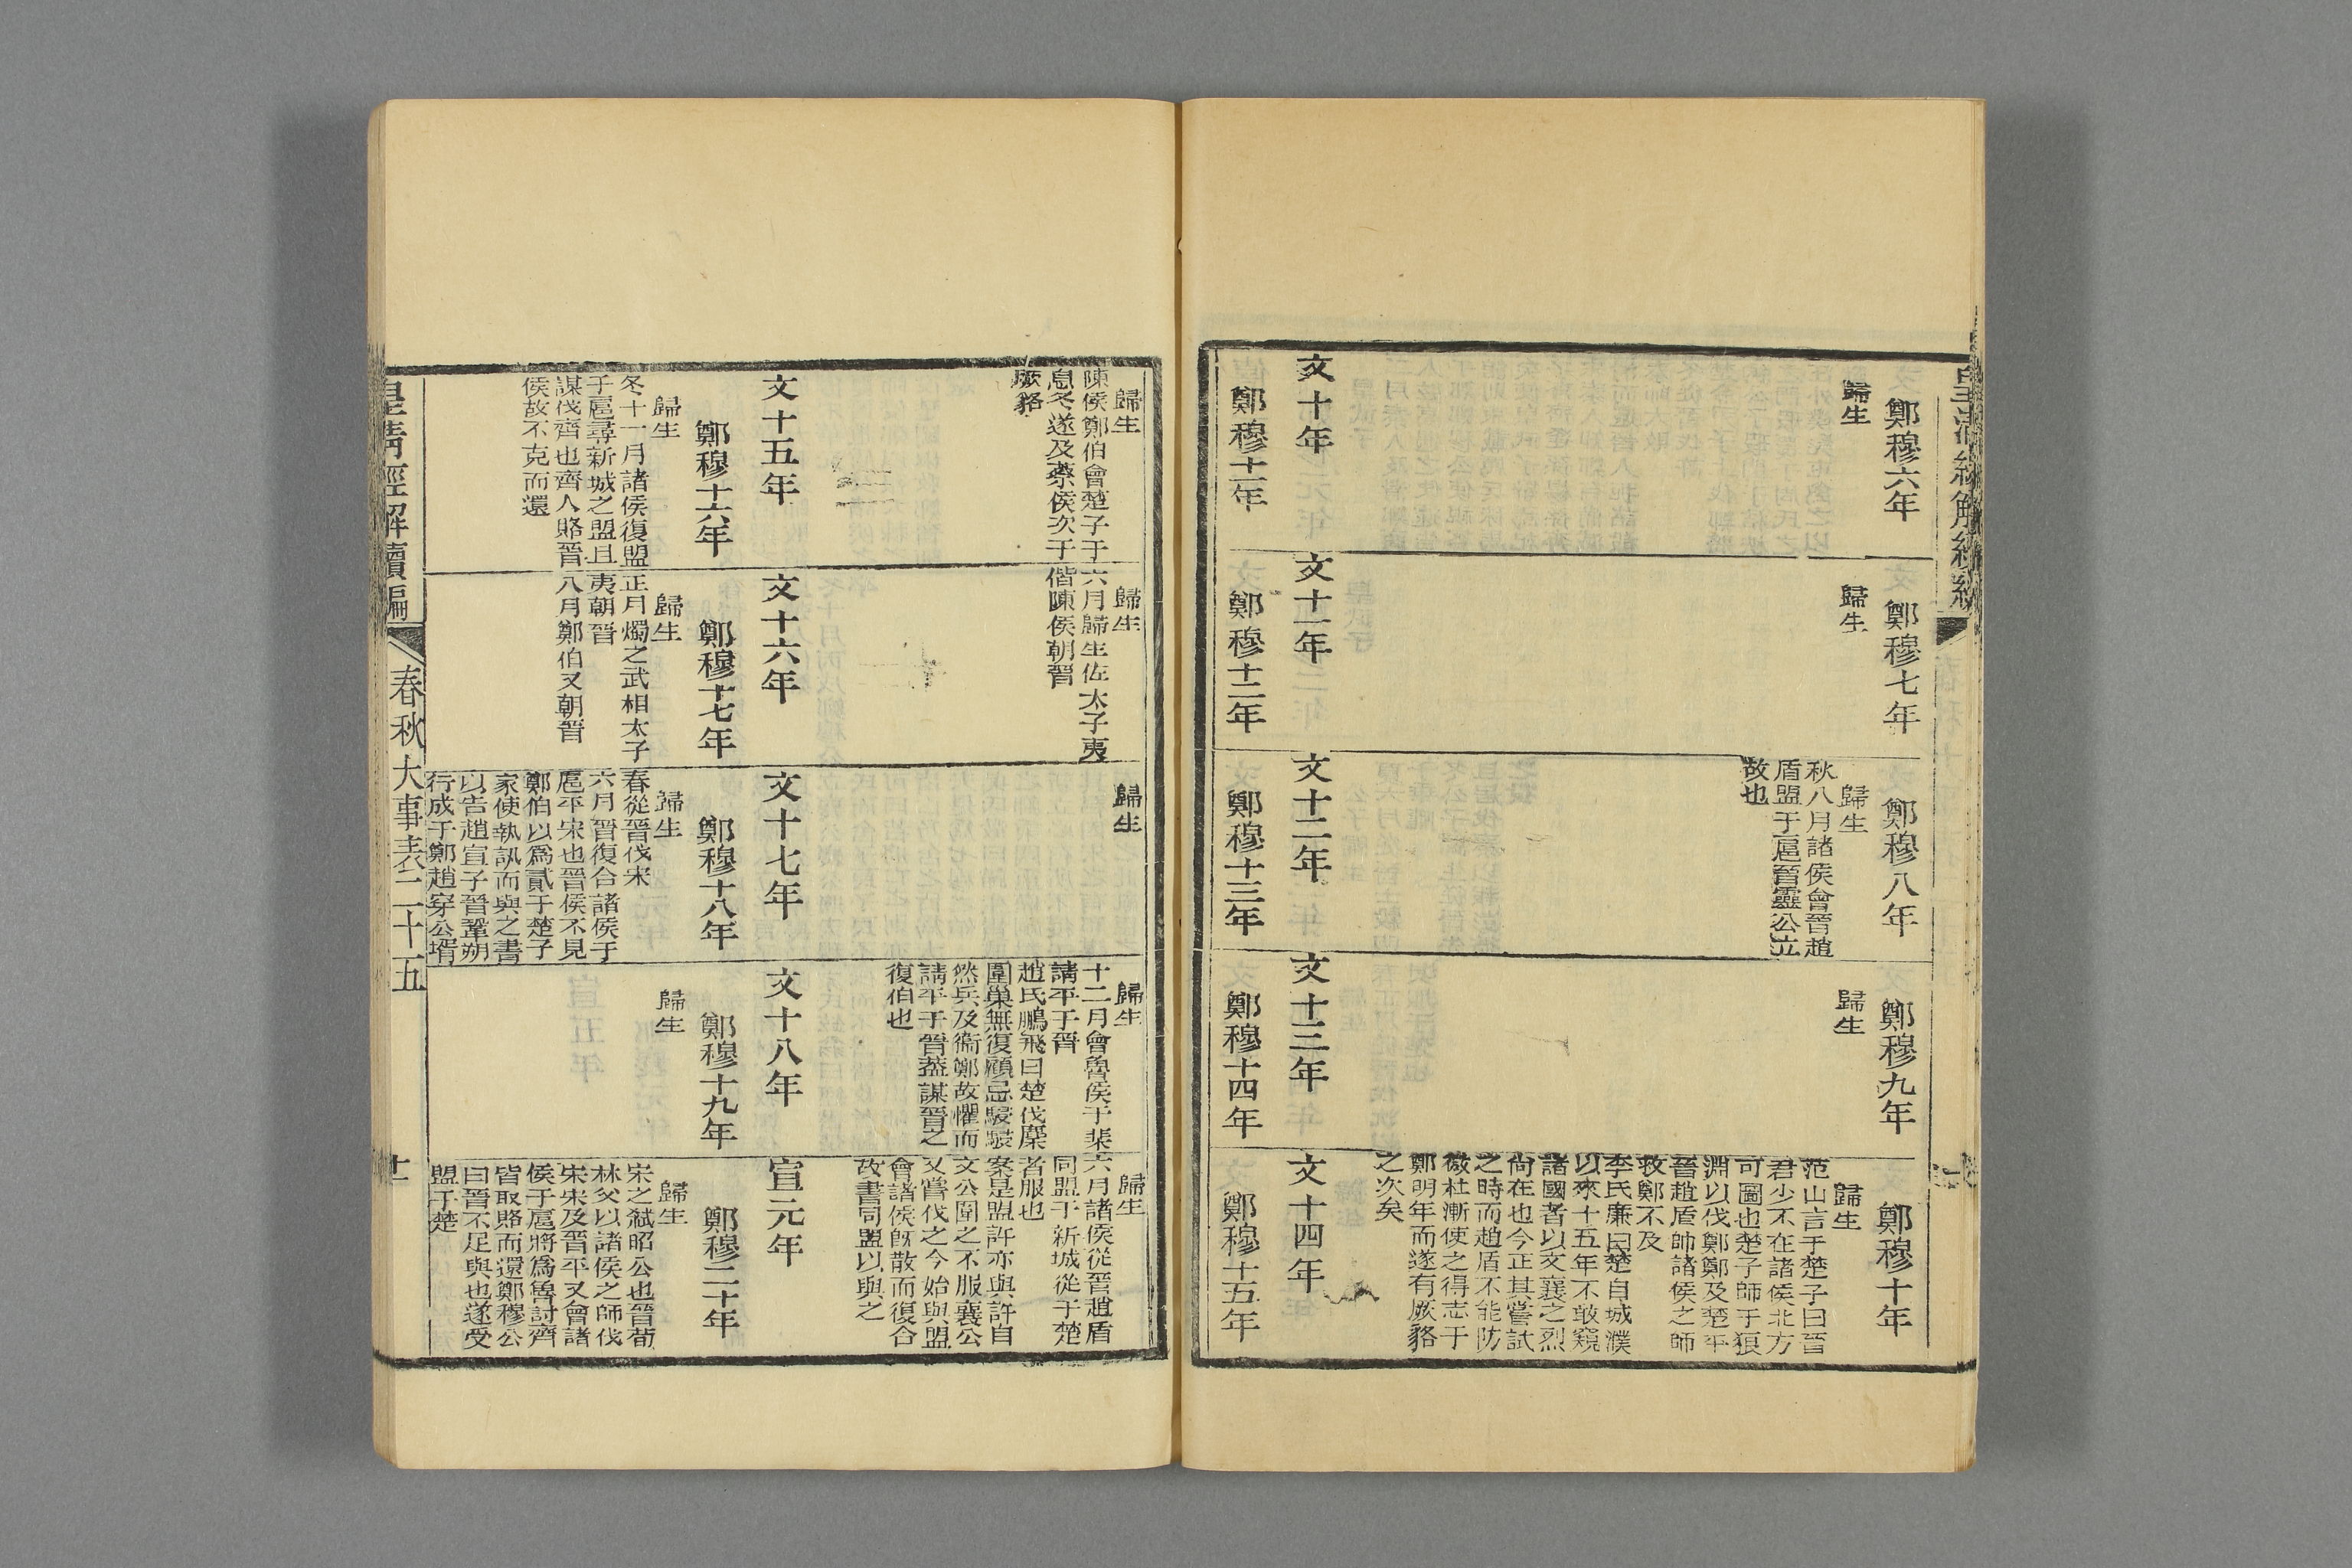 鄭穆六年
歸生
鄭穆七年
歸生
鄭穆八年
歸生
秋八月諸侯會晉趙
盾盟于扈晉靈公立
故也
鄭穆九年
歸生
鄭穆十年
歸生
范山言于楚子曰晉
君少不在諸侯北方
可圖也楚子師于狼
淵以伐鄭鄭及楚平
晉趙盾帥諸侯之師
救鄭不及
李氏廉曰楚自城濮
以來十五年不敢窺
諸國者以文襄之烈
尚在也今正其嘗試
之時而趙盾不能防
微杜漸使之得志于
鄭明年而遂有厥貉
之次矣
文十年
鄭穆十一年
文十一年
鄭穆十二年
文十二年
鄭穆十三年
文十三年
鄭穆十四年
文十四年
鄭穆十五年
歸生
陳侯鄭伯會楚子于
息冬遂及蔡侯次于
厥貉
歸生
六月歸生佐太子夷
偕陳侯朝晉
歸生
歸生
十二月會魯侯于棐
請平于晉
趙氏鵬飛曰楚伐麇
圍巢無復顧忌駸駸
然兵及衞鄭故懼而
請平于晉葢謀晉之
復伯也
歸生
六月諸侯從晉趙盾
同盟于新城從于楚
者服也
案是盟許亦與許自
文公圍之不服襄公
又嘗伐之今始與盟
會諸侯旣散而復合
故書同盟以與之
文十五年
鄭穆十六年
歸生
冬十一月諸侯復盟
于扈尋新城之盟且
謀伐齊也齊人賂晉
侯故不克而還
文十六年
鄭穆十七年
歸生
正月燭之武相太子
夷朝晉
八月鄭伯又朝晉
文十七年
鄭穆十八年
歸生
春從晉伐宋
六月晉復合諸侯于
扈平宋也晉侯不見
鄭伯以爲貳于楚子
家使執訊而與之書
以告趙宣子晉鞏朔
行成于鄭趙穿公壻
文十八年
鄭穆十九年
歸生
宣元年
鄭穆二十年
歸生
宋之弒昭公也晉荀
林父以諸侯之師伐
宋宋及晉平又會諸
侯于扈將爲魯討齊
皆取賂而還鄭穆公
曰晉不足與也遂受
盟于楚
皇清經解續編
春秋大事表二十五